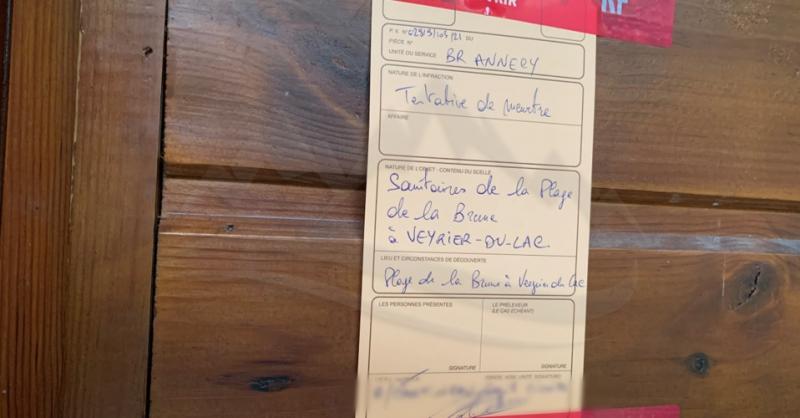 RIR
RF
P. V. N° 02313/105/21 DU
PIÈCE N°
UNITÉ DU SERVICE BR ANNECY
NATURE DE L'INFRACTION
Tentative de meurtre
AFFAIRE
NATURE DE L'OBJET - CONTENU DU SCELLE
Sanitaires de la Plage
de la Brune
à VEYRIER-DU-LAC
LIEU ET CIRCONSTANCES DE DÉCOUVERTE
Plage de la Brune à Veyrier du Lac
LES PERSONNES PRÉSENTES
LE PRÉLEVEUR
(LE CAS ÉCHÉANT)
SIGNATURE
SIGNATURE